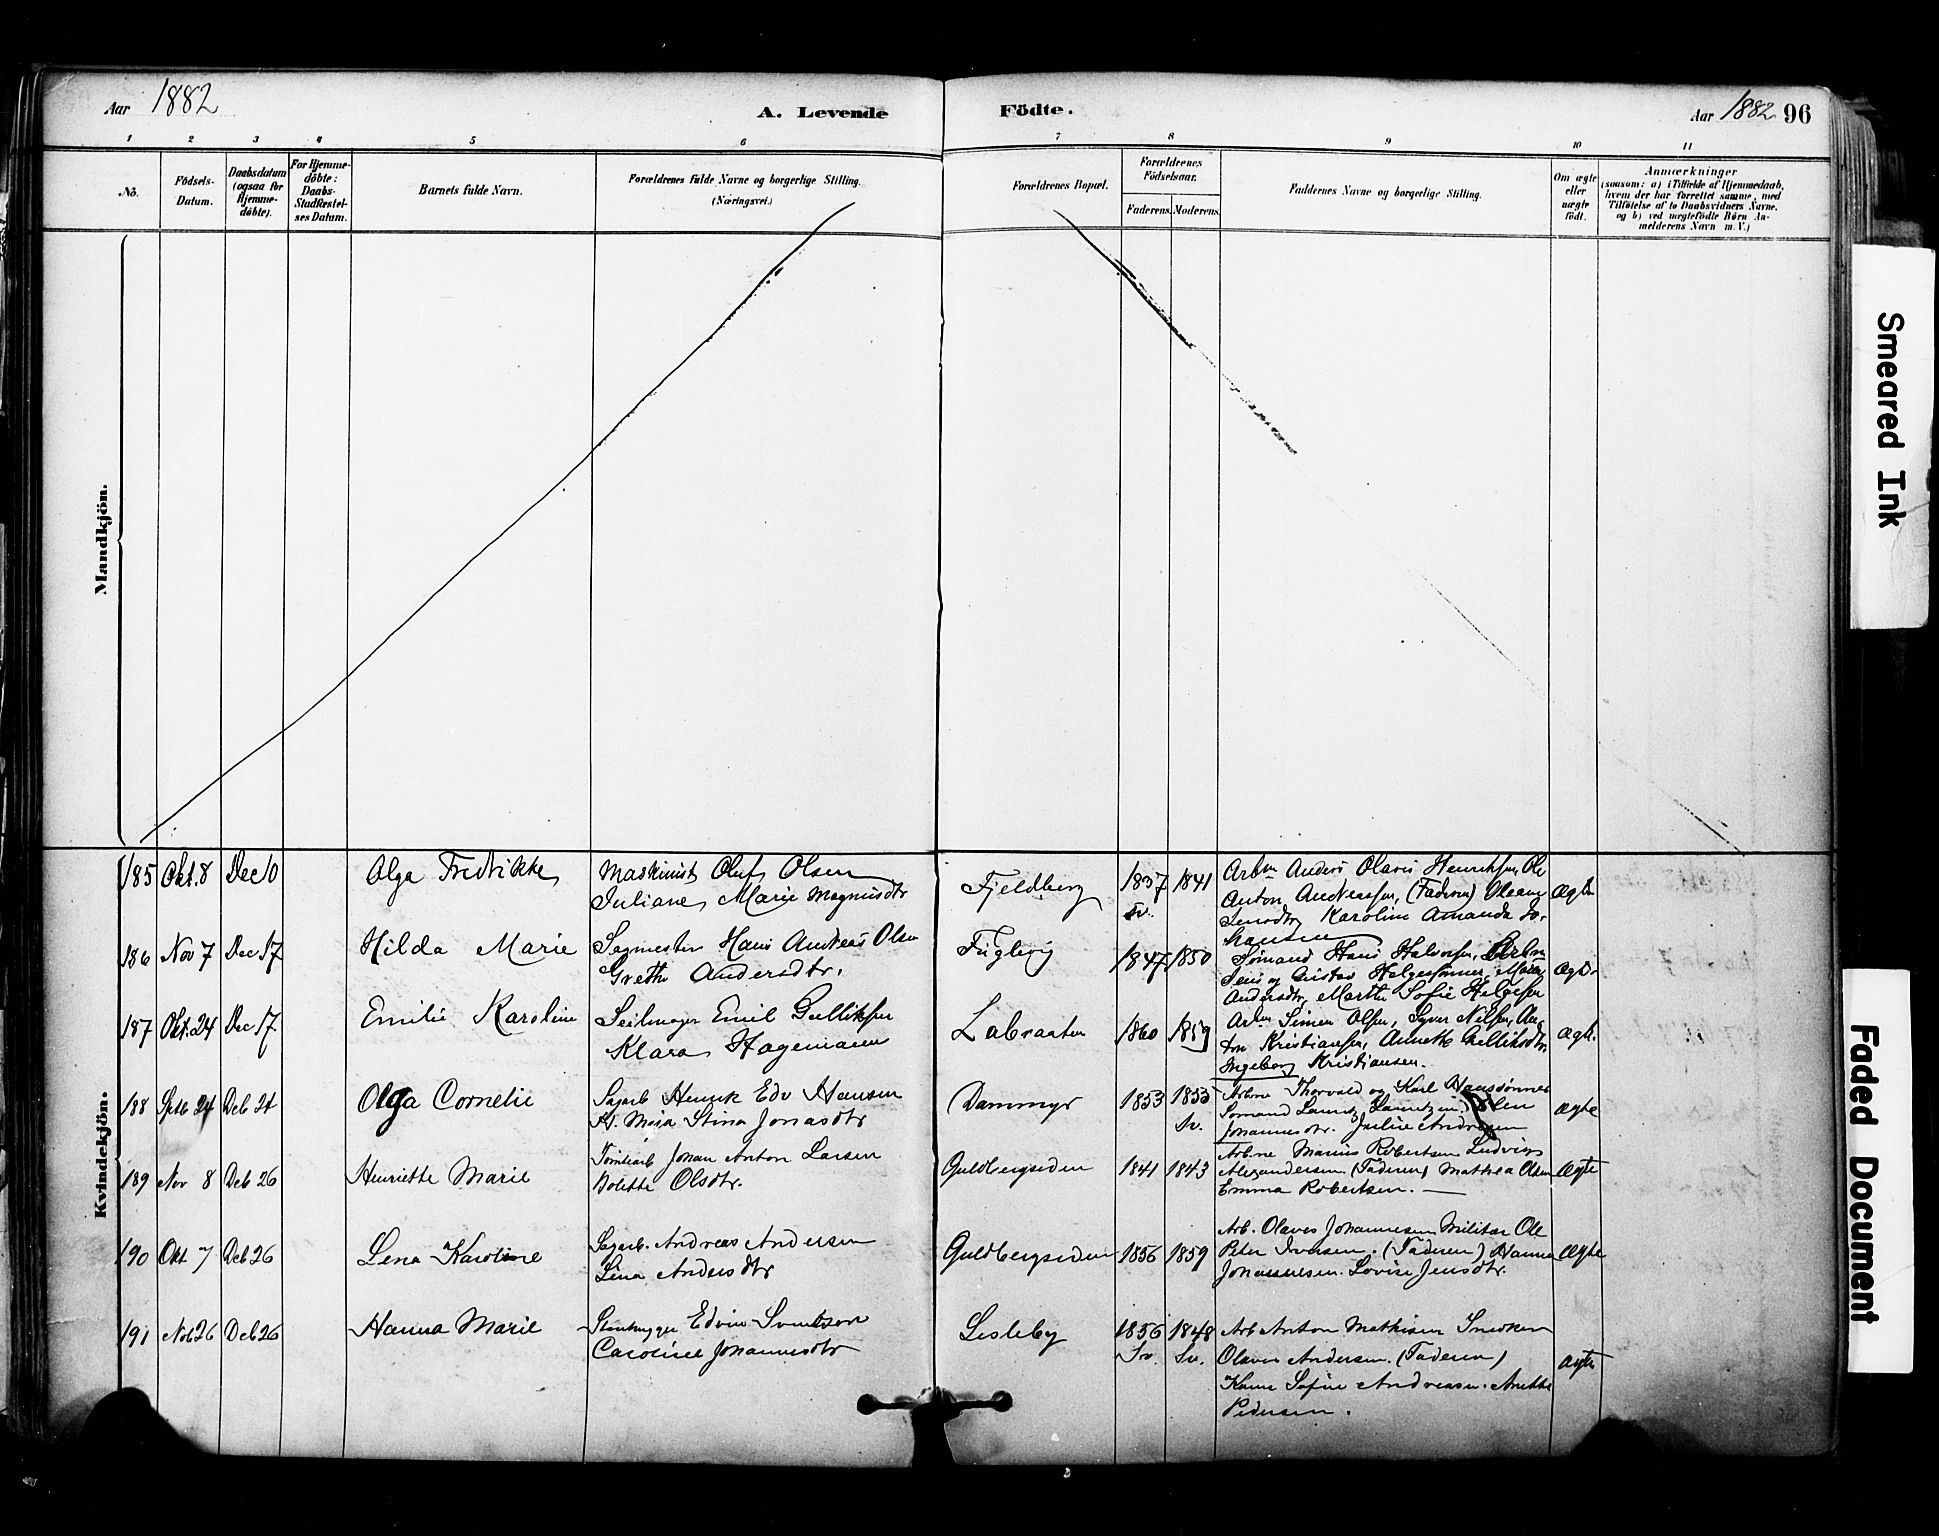 Aar 1882
A. Levende Födte.
Aar 1882 96
1 2 3 4 5 6 7 8 9 10 11
No.
Födsels-
Datum.
Daabsdatum
(ogsaa for
Hjemme-
döbte).
For Hjemme-
döbte:
Daabs-
Stadfæstel-
ses Datum.
Barnets fulde Navn.
Forældrenes fulde Navne og borgerlige Stilling.
(Næringsvei.)
Forældrenes Bopæl.
Forældrenes
Födselsaar.
Faderens. Moderens.
Faddernes Navne og borgerlige Stilling.
Om ægte
eller
uægte
födt.
Anmærkninger
(saasom: a) i Tilfælde af Hjemmedaab,
hvem der har forrettet samme, med
Tilföielse af to Daabsvidners Navne.
og b) ved uægtefödte Börn An-
melderens Navn m. V.)
Mandkjön.
Kvindekjön.
185 Okt. 8 Dec 10
Olga Fredrikke
Maskinist Oluf Olsen
Juliane Marie Magnusdtr
Fjeldberg
1837 1841
Sv.
Arbm Anders Olavis Henriksen, Ole
Anton Andreassen, (Faderen) Oleane
Karoline Amanda Jo-
hansen
Ægte
186 Nov 7 Dec 17
Hilda Marie
Sagmester Hans Andreas Olsen
Grethe Andersdtr.
Fuglevig
1847 1850
Sömand Hans Halvorsen, Arbm
Jens og Gustav Helgesönner, Maren
Andersdtr, Marthe Sofie Helgesen
Ægte
187 Okt. 24 Dec 17
Emilie Karoline
Seilmager Emil Gulliksen
Klara Hagemann
Labraaten
1860 1859
Arbm Simen Olsen, Syver Nilsen, An-
ton Kristiansen, Annette Gulliksdtr,
Ingeborg Kristiansen.
Ægte
188 Sptb 24 Dcb 21
Olga Cornelie
Sagarb Henrik Edv Hansen
Stina Jonasdtr
Dammyr
1853 1853
Sv.
Arbne Thorvald og Karl Hanssönner
Sömand Lauritz Lauritzen.
Johannesdtr. Julie Andresen
Ægte
189 Nov 8 Dcb 26
Henriette Marie
Tömtearb Johan Anton Larsen
Bolette Olsdtr.
Guldbergseden
1841 1843
Arbne Marius Robertsen Ludvig
Alexandersen. (Faderen) Mathea Olsen
Emma Robertsen.
Ægte
190 Okt 7 Dcb 26
Lena Karoline
Sagarb. Andreas Andersen
Lina Andersdtr
Guldbergseden
1856 1859
Arb. Olaves Johannesen Militær Ole
Peter Iversen. (Faderen) Hanna
Johannesen. Lovise Jensdtr.
Ægte
191 Nob 26 Dcb 26
Hanna Marie
Stenhugger Edvin Svendson
Caroline Johannesdtr
Lisleby
1856 1848
Sv. Sv.
Arb Anton Mathisen Snedker
Olaves Andersen. (Faderen)
Kone Sofie Andreasen. Anette
Pedersen.
Ægte
Smeared Ink
Faded Document